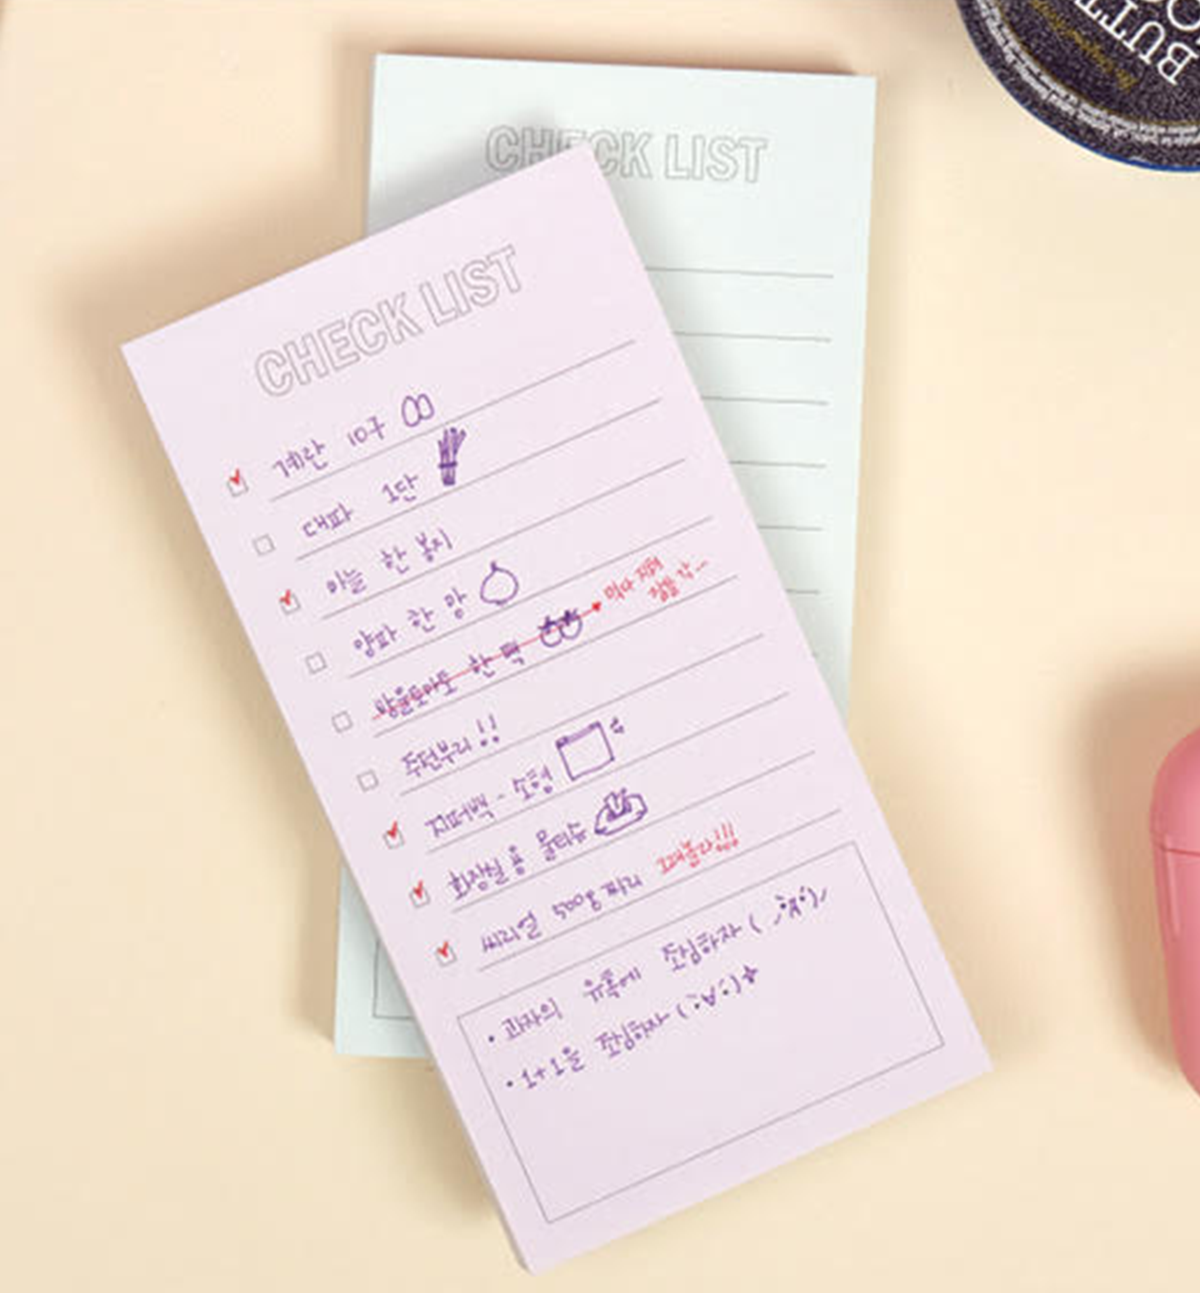 BUTT
CO
CHECK LIST
CHECK LIST
계란 10구
대파 1단
마늘 한 봉지
양파 한 망
방울토마토 한 팩
먹다 지쳐
잠들 각...
주전부리!!
지퍼백 - 소형
화장실용 물티슈
씨리얼 500g 짜리 그래놀라!!!
• 과자의 유혹에 조심하자
• 1+1을 조심하자